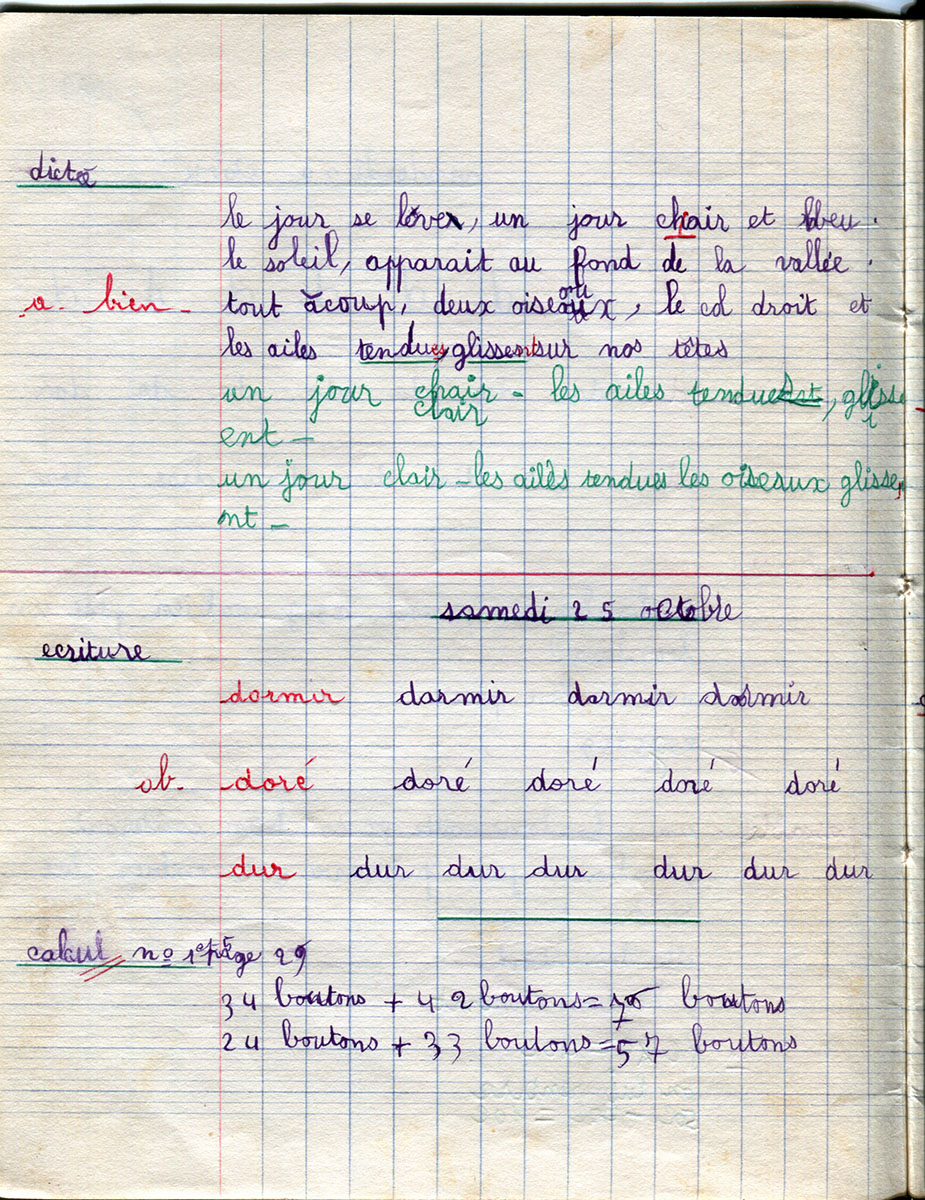 dictée
le jour se lève, un jour chair et bleu.
le soleil, apparait au fond de la vallée.
a. bien - tout àcoup, deux oiseaux, le col droit et
les ailes tendues glissent sur nos têtes
un jour chair - les ailes tendues, gliss
clair i
ent -
un jour clair - les ailès tendues les oiseaux glisse
nt -
samedi 25 octobre
ecriture
dormir darmir dormir dormir
ab. doré doré doré doré doré
dur dur dur dur dur dur dur
calcul no 1 et 5 page 29
34 boutons + 42 boutons = 76 boutons
24 boutons + 33 boutons = 57 boutons